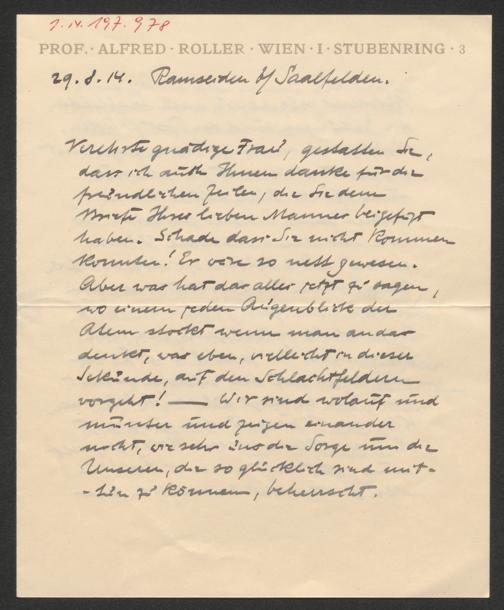 1.N.197.978
PROF. · ALFRED · ROLLER · WIEN · I · STUBENRING · 3
29.8.14. Ramseiden b/ Saalfelden.
Verehrte gnädige Frau, gestatten Sie,
dass ich auch Ihnen danke für die
freundlichen Zeilen, die Sie dem
Briefe Ihres lieben Mannes beigefügt
haben. Schade dass Sie nicht kommen
konnten! Es wäre so nett gewesen.
Aber was hat das alles jetzt zu sagen,
wo einem jeden Augenblick der
Atem stockt wenn man an das
denkt, was eben, vielleicht in dieser
Sekunde, auf den Schlachtfeldern
vorgeht! — Wir sind wolauf und
munter und zeigen einander
nicht, wie sehr uns die Sorge um die
Unseren, die so glücklich sind mit-
-tun zu können, beherrscht.